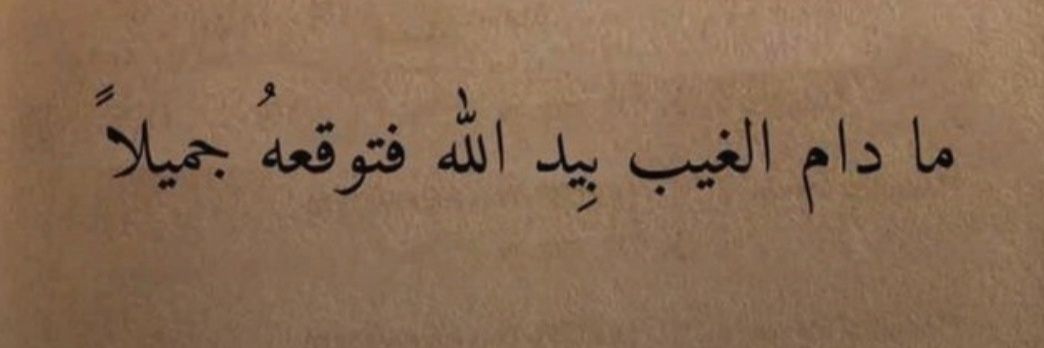 ما دام الغيب بِيد الله فتوقعهُ جميلاً